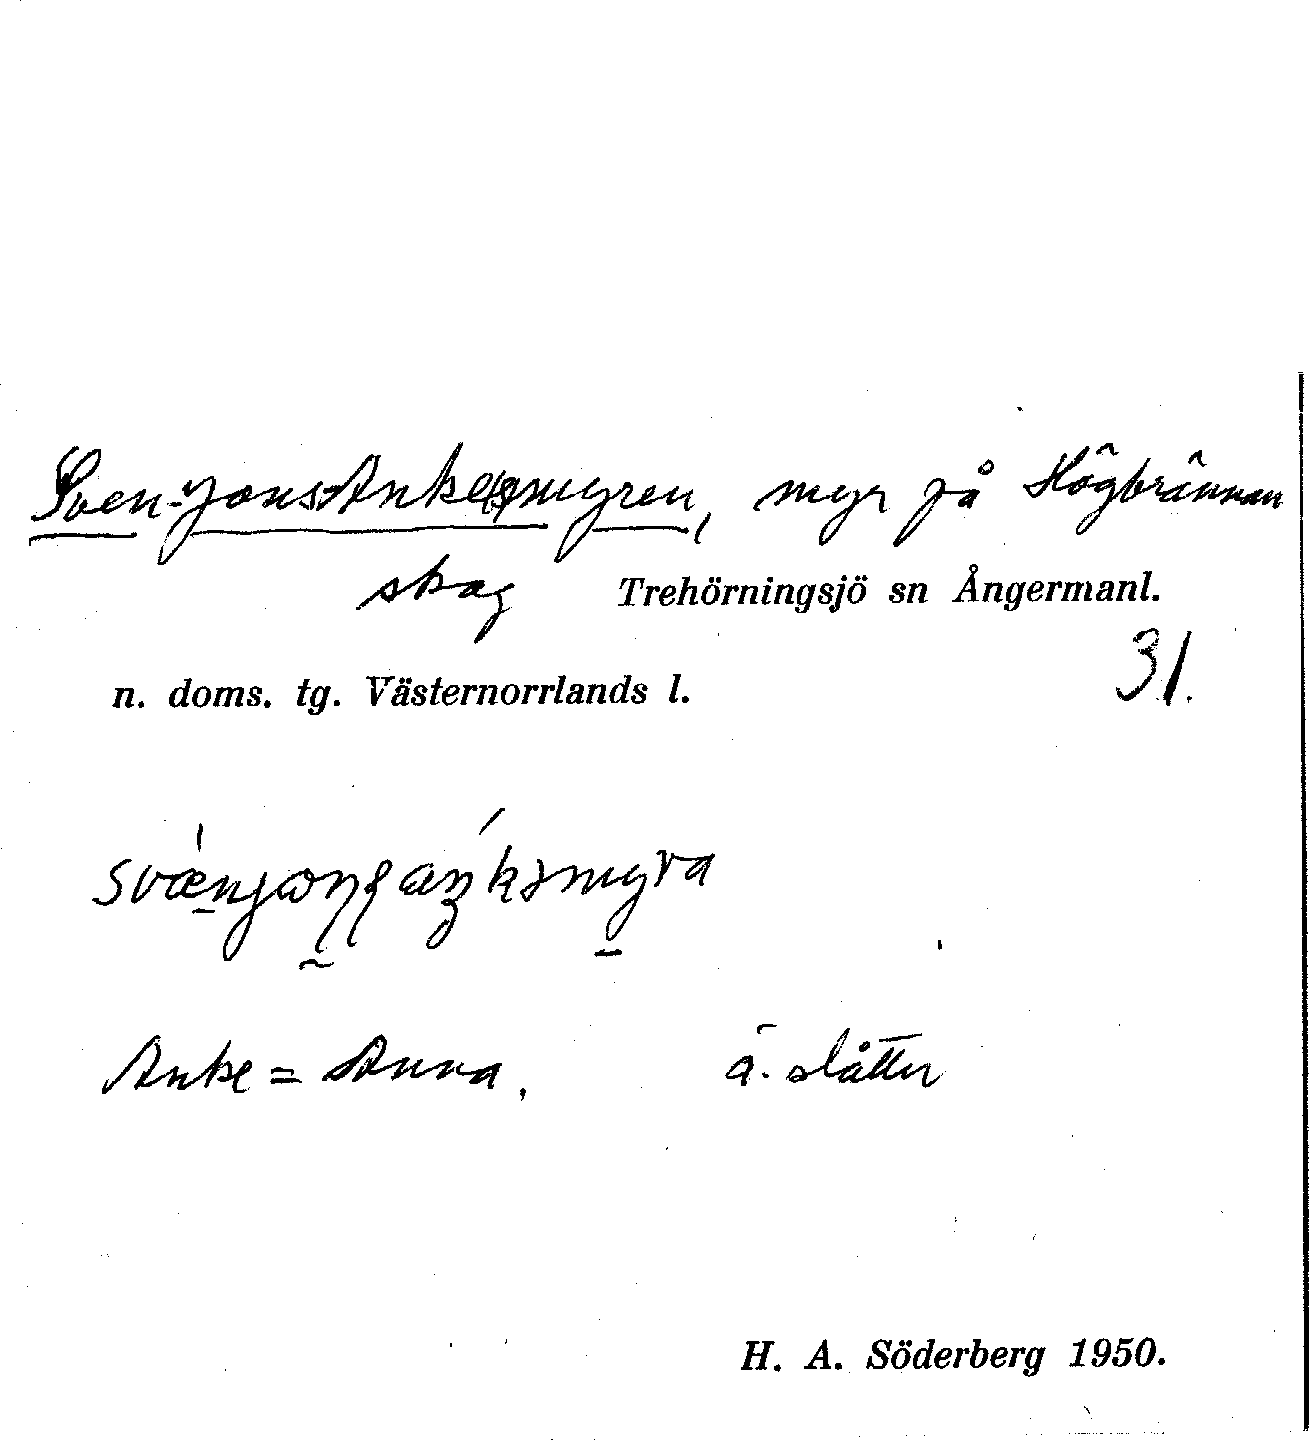 Sven-Jons-Anke(s)myren, myr på Högbrännan
skog Trehörningsjö sn Ångermanl.
31.
n. doms. tg. Västernorrlands l.
Anke = Anna. ä. slåtter
H. A. Söderberg 1950.